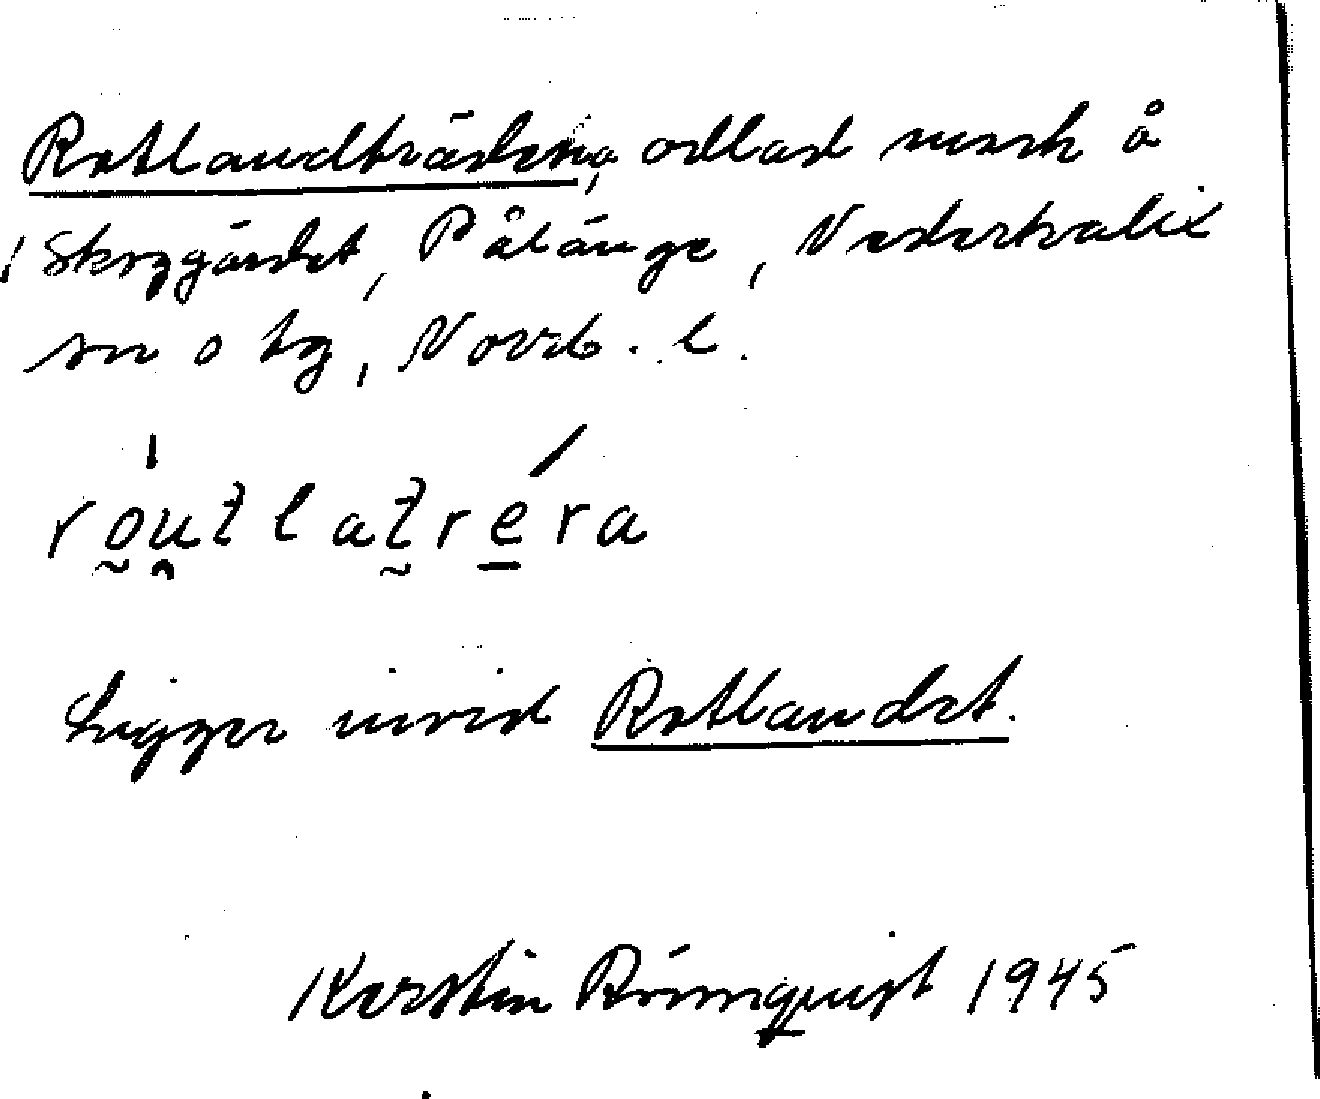 Rotlandträdena, odlad mark å
Skoggärdet, Pålänge, Nederkalix
sn o tg, Norrb. l.
routlatrera
Ligger invid Rotlandet.
Kerstin Rönnquist 1945